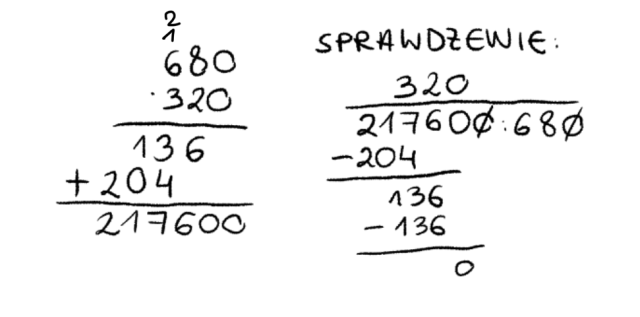 2
1
680
·320
136
+ 204
217600
SPRAWDZEWIE:
320
217600:680
-204
136
- 136
0